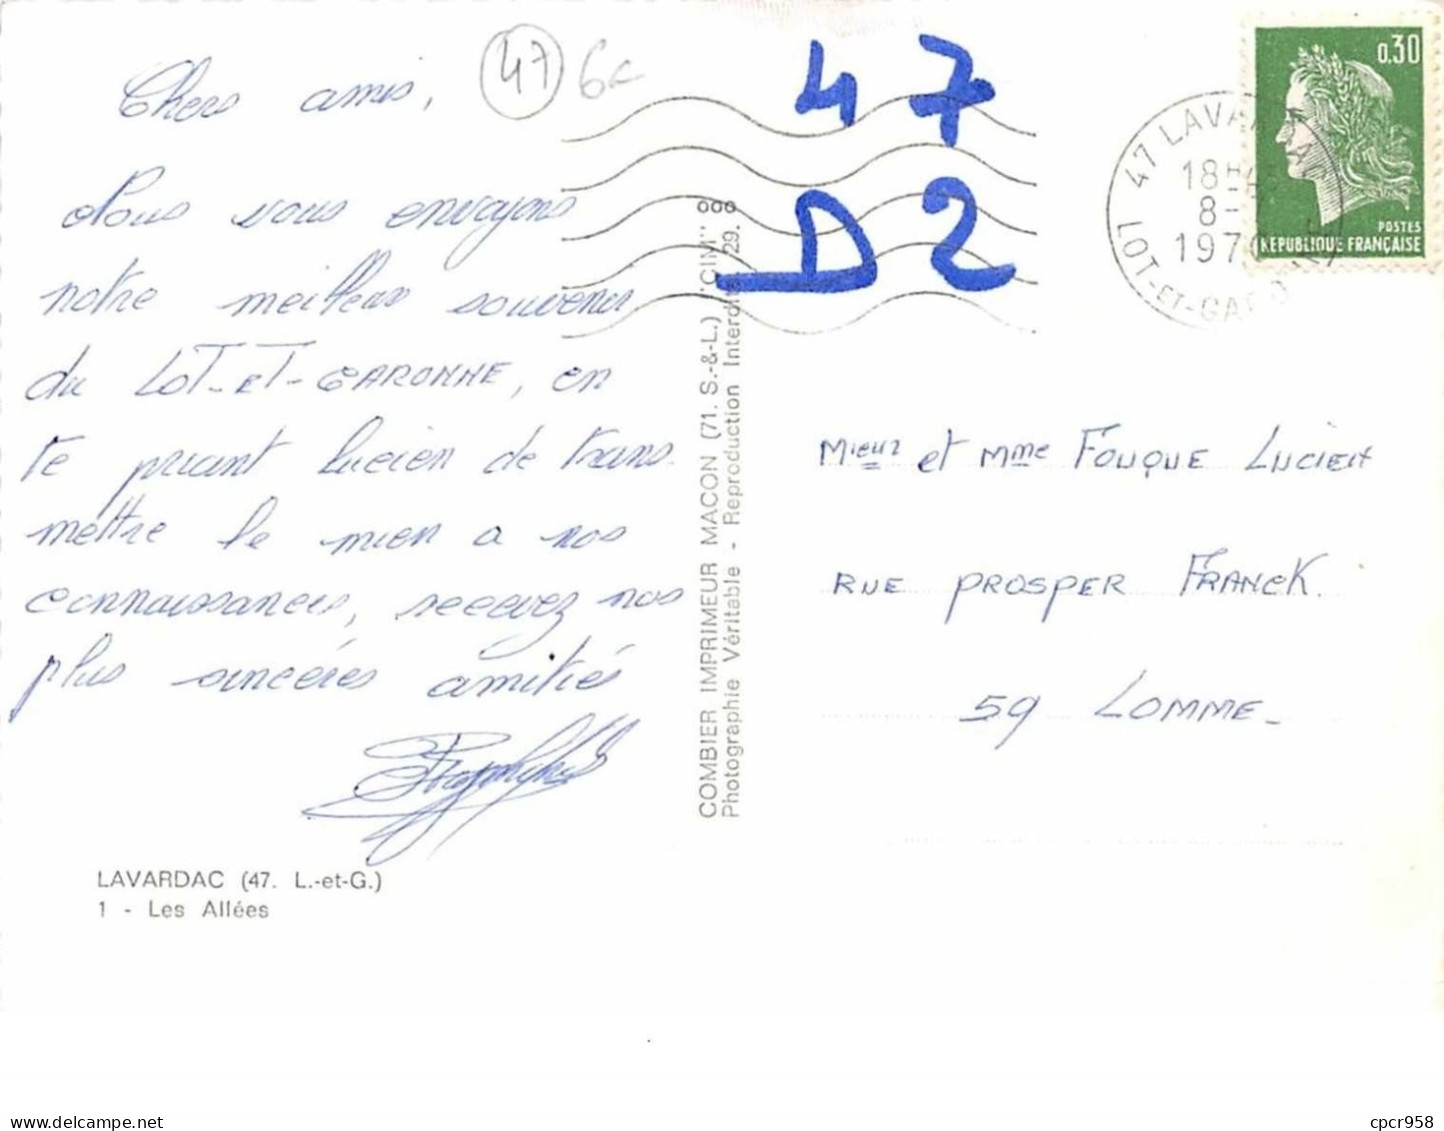 Chers amis,
47
6€
47
D2
Nous vous envoyons
notre meilleur souvenir
du LOT-ET-GARONNE, en
te priant Lucien de trans
mettre le mien a nos
connaissances, recevez nos
plus sincères amitiés
LAVARDAC (47. L.-et-G.)
1 - Les Allées
COMBIER IMPRIMEUR MACON (71. S.-&-L.) "CIM"
Photographie Véritable - Reproduction Interdite 29.
000
47 LAVARDAC
LOT-ET-GARONNE
18H
8-
1970
0,30
POSTES
REPUBLIQUE FRANÇAISE
Mieur et Mme FOUQUE LUCIEN
RUE PROSPER FRANCK.
59 LOMME-
cpcr958